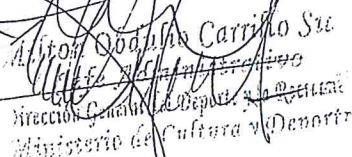 Milton Obdulio Carrillo Su
Jefe Administrativo
Dirección General del Deporte y la Recreac
Ministerio de Cultura y Deporte